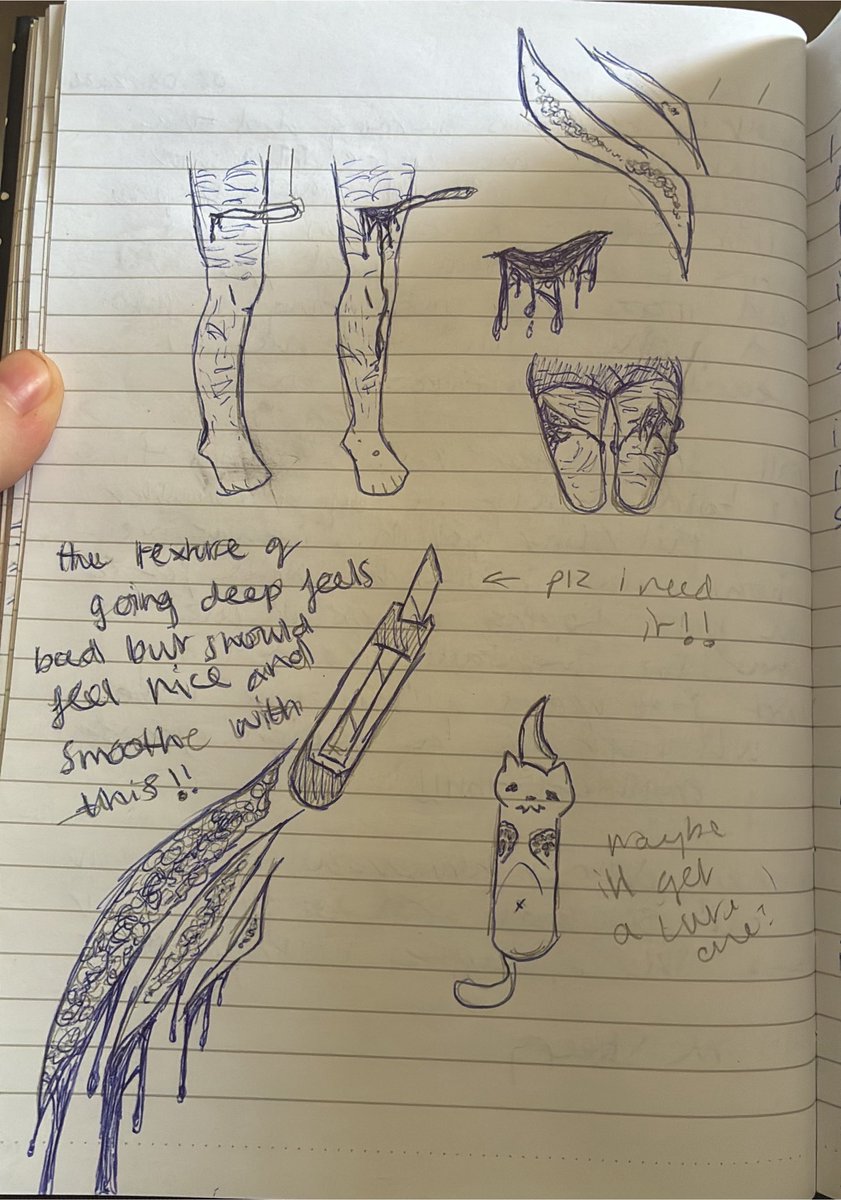 the texture of
going deep feels
bad but should
feel nice and
smoothe with
this!!
← plz i need
it!!
maybe
ill get
a cute
one?